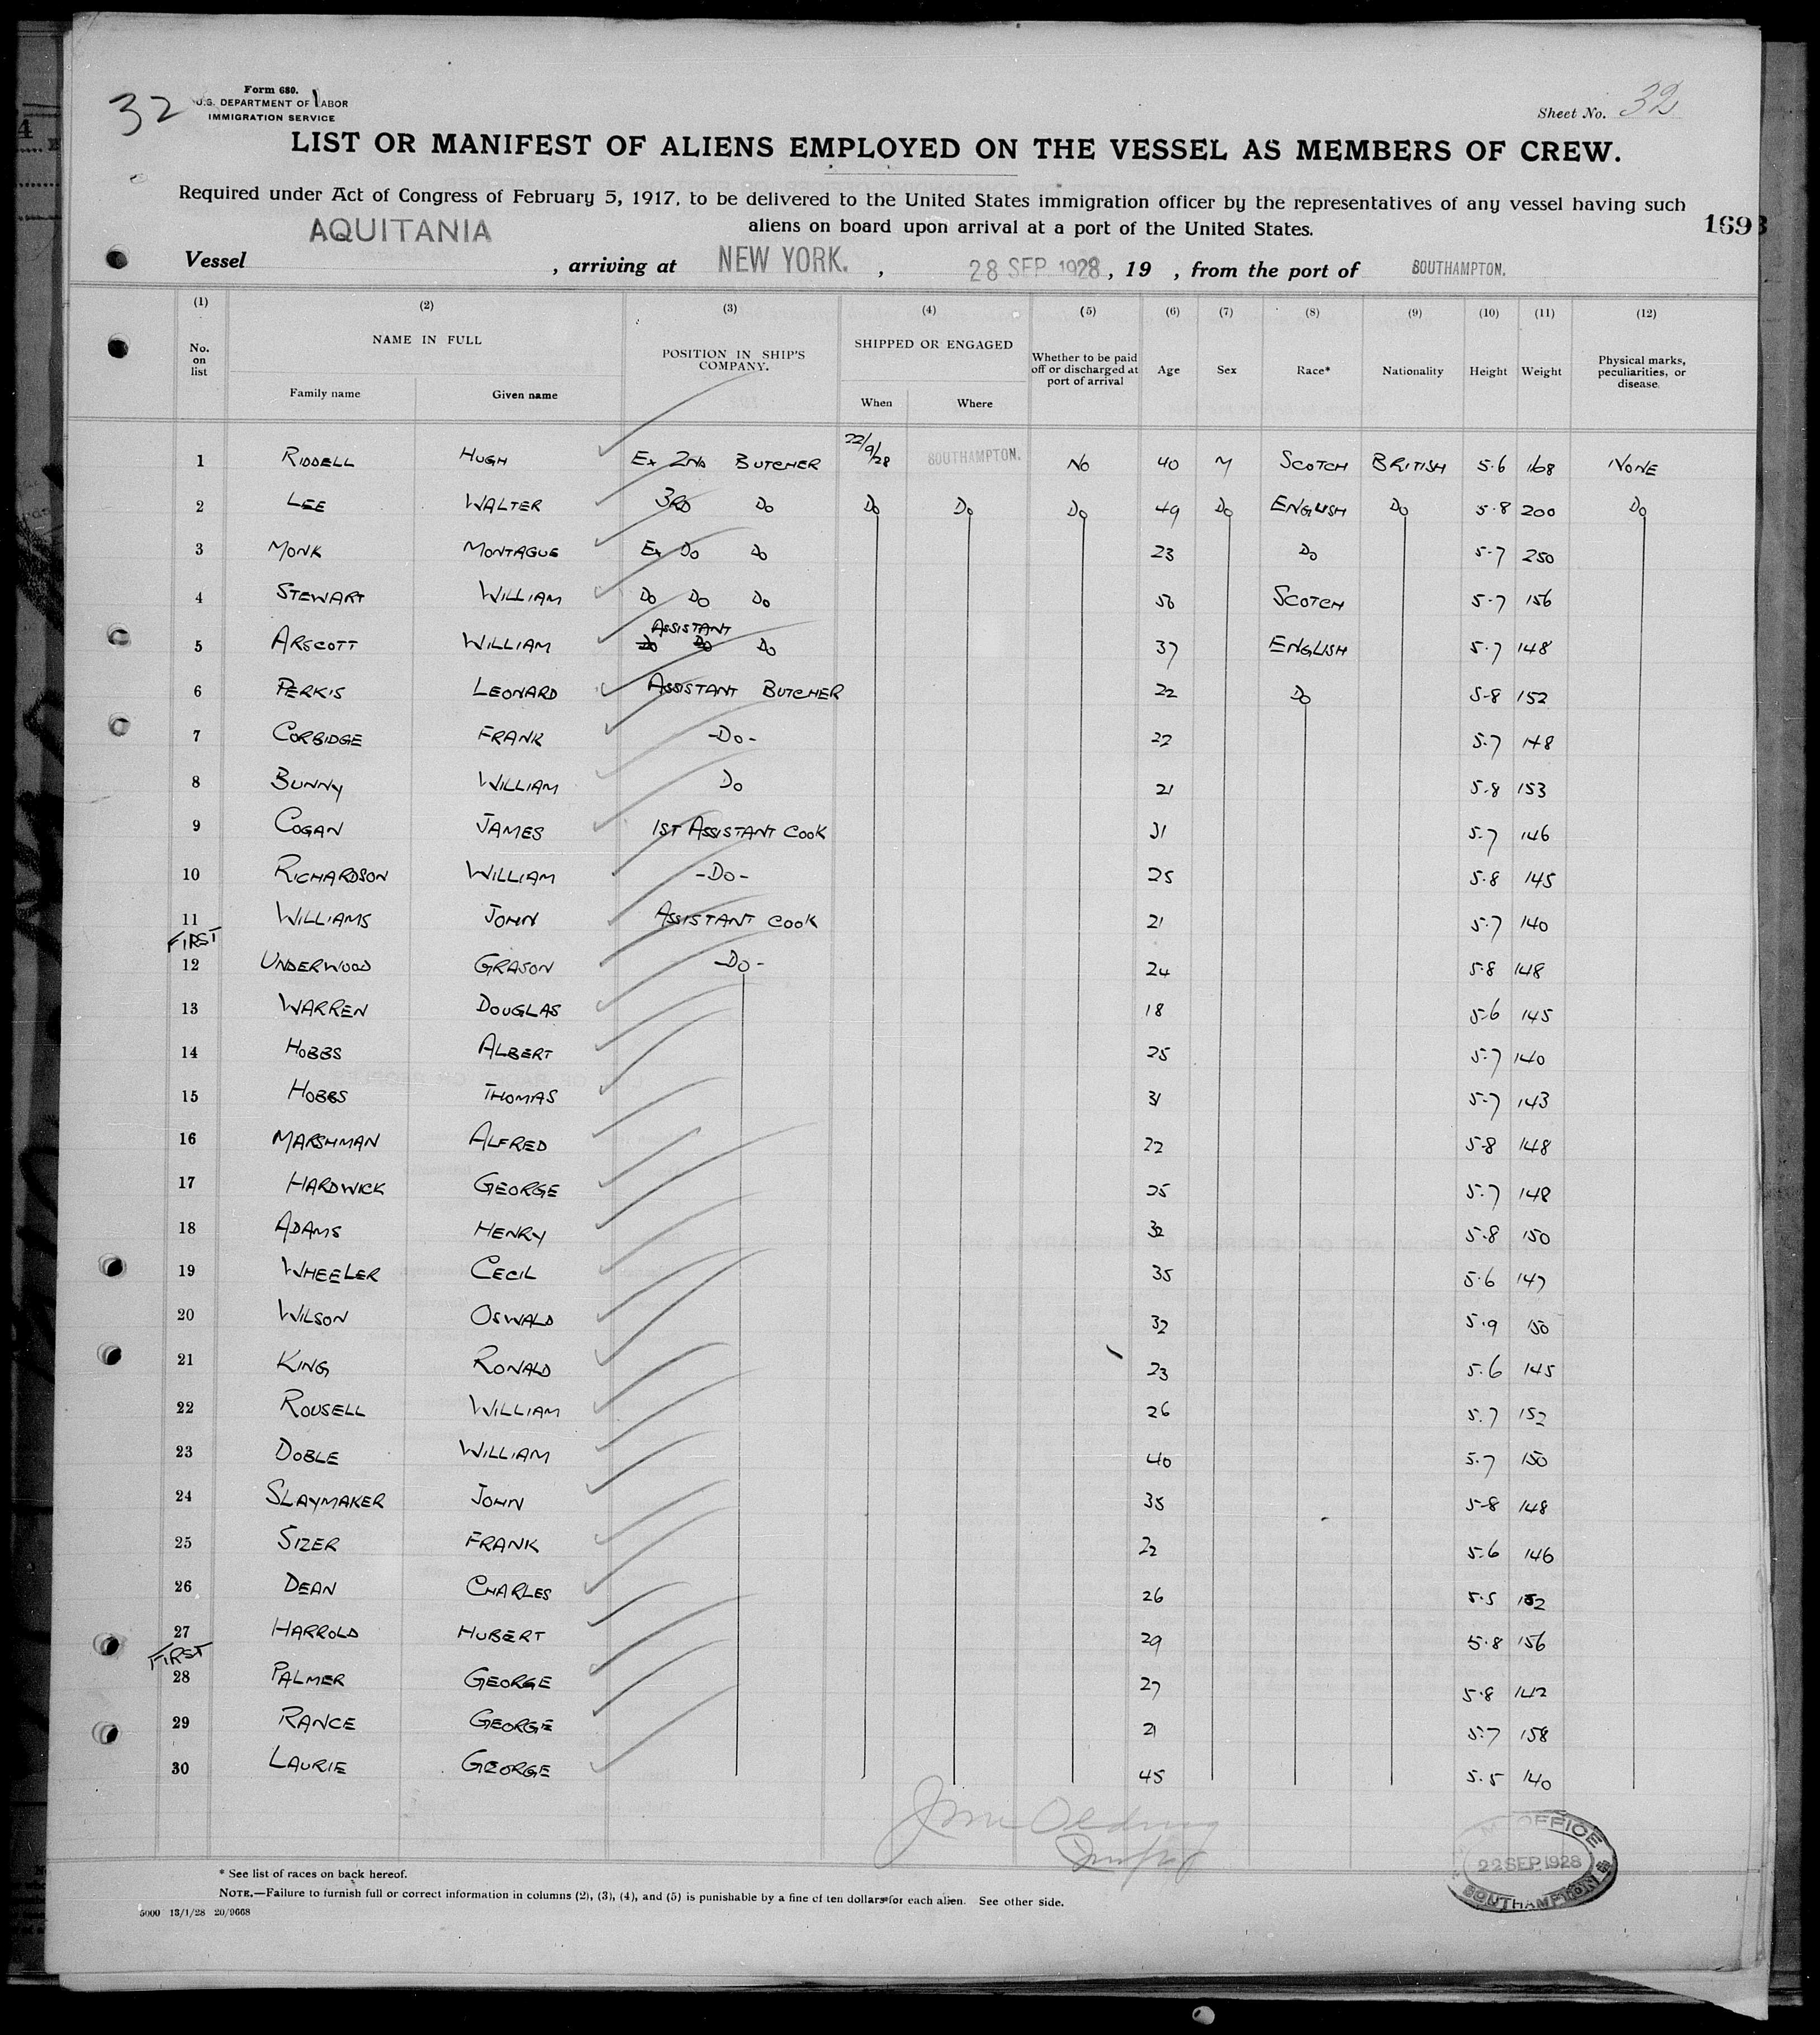 32
Form 680.
U.S. DEPARTMENT OF LABOR
IMMIGRATION SERVICE
Sheet No. 32
LIST OR MANIFEST OF ALIENS EMPLOYED ON THE VESSEL AS MEMBERS OF CREW.
Required under Act of Congress of February 5, 1917, to be delivered to the United States immigration officer by the representatives of any vessel having such
aliens on board upon arrival at a port of the United States.
1693
Vessel AQUITANIA, arriving at NEW YORK., 28 SEP 1928, 19 , from the port of SOUTHAMPTON.
(1) (2) (3) (4) (5) (6) (7) (8) (9) (10) (11) (12)
No. on list
NAME IN FULL
Family name Given name
POSITION IN SHIP'S COMPANY.
SHIPPED OR ENGAGED
When Where
Whether to be paid off or discharged at port of arrival
Age Sex Race* Nationality Height Weight
Physical marks, peculiarities, or disease.
1 RIDDELL HUGH Ex 2ND BUTCHER 22/9/28 SOUTHAMPTON. NO 40 M SCOTCH BRITISH 5.6 168 NONE
2 LEE WALTER 3RD Do Do Do Do 49 Do ENGLISH Do 5.8 200 Do
3 MONK MONTAGUE Ex Do Do 23 Do 5.7 250
4 STEWART WILLIAM Do Do Do SCOTCH 5.7 156
5 ARSCOTT WILLIAM Do Do ASSISTANT Do 37 ENGLISH 5.7 148
6 PERKIS LEONARD ASSISTANT BUTCHER 22 Do 5-8 152
7 CORBIDGE FRANK -Do- 22 5.7 148
8 BUNNY WILLIAM Do 21 5.8 153
9 COGAN JAMES 1ST ASSISTANT COOK 31 5.7 146
10 RICHARDSON WILLIAM -Do- 25 5.8 145
11 WILLIAMS JOHN ASSISTANT COOK 21 5.7 140
FIRST
12 UNDERWOOD GRASON -Do- 24 5.8 148
13 WARREN DOUGLAS 18 5.6 145
14 HOBBS ALBERT 25 5.7 140
15 HOBBS THOMAS 31 5.7 143
16 MARSHMAN ALFRED 22 5-8 148
17 HARDWICK GEORGE 25 5.7 148
18 ADAMS HENRY 32 5.8 150
19 WHEELER CECIL 35 5.6 147
20 WILSON OSWALD 32 5.9 150
21 KING RONALD 23 5.6 145
22 ROUSELL WILLIAM 26 5.7 152
23 DOBLE WILLIAM 40 5.7 150
24 SLAYMAKER JOHN 35 5-8 148
25 SIZER FRANK 22 5.6 146
26 DEAN CHARLES 26 5.5 152
27 HARROLD HUBERT 29 5.8 156
FIRST
28 PALMER GEORGE 27 5.8 142
29 RANCE GEORGE 21 5.7 158
30 LAURIE GEORGE 45 5.5 140
OFFICE
22 SEP 1928
SOUTHAMPTON
* See list of races on back hereof.
NOTE.—Failure to furnish full or correct information in columns (2), (3), (4), and (5) is punishable by a fine of ten dollars for each alien. See other side.
5000 13/1/28 20/9668